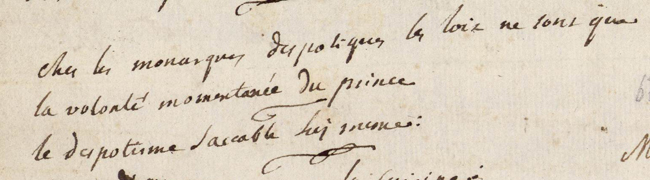 ches les monarques despotiques les loix ne sont que
la volonté momentanée du prince
le despotisme s'accable luy meme: